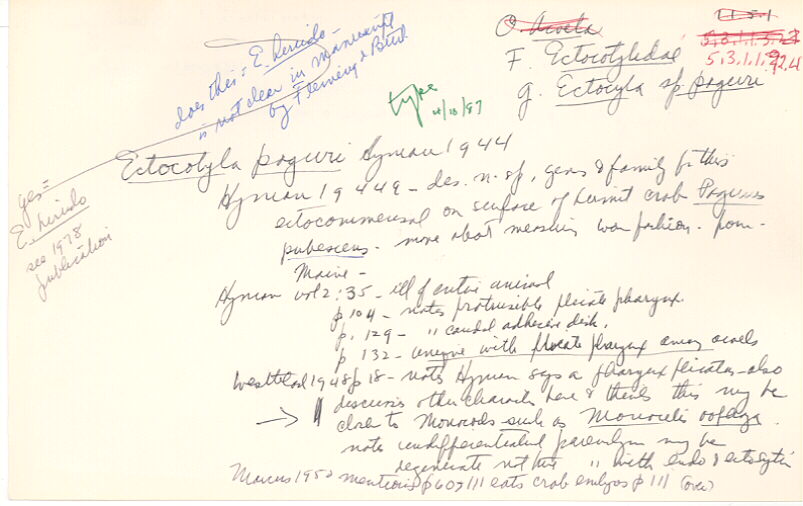 O. Acoela
11.5.1
5.3.1.1.3.
F. Ectocotylidae
5.3.1.1.92.4
g. Ectocyla sp paguri
does this = E. hirudo -
is not clear in manuscript
by Fleming & Burt
type
Ectocotyla paguri Hyman 1944
yes =
E. hirudo
see 1978
publication
Hyman 1944a - des. n. sp, genus & family for this
ectocommensal on surface of hermit crab Pagurus
pubescens - move about measuring worm fashion - from
Maine -
Hyman vol 2: 35 - ill of entire animal
p 104 - notes protrusible plicate pharynx
p. 129 - " caudal adhesive disk.
p 132 - unique with plicate pharynx among acoels
Westblad 1948 p 18 - notes Hyman says a pharynx plicatus - also
discusses other characters here & thinks this may be
closer to Monocelids such as Monocelis
note undifferentiated parenchym may be
degenerate not true " with endo & ectocytia
Marcus 1950 mentions p 60 111 eats crab embryos p 111 (over)